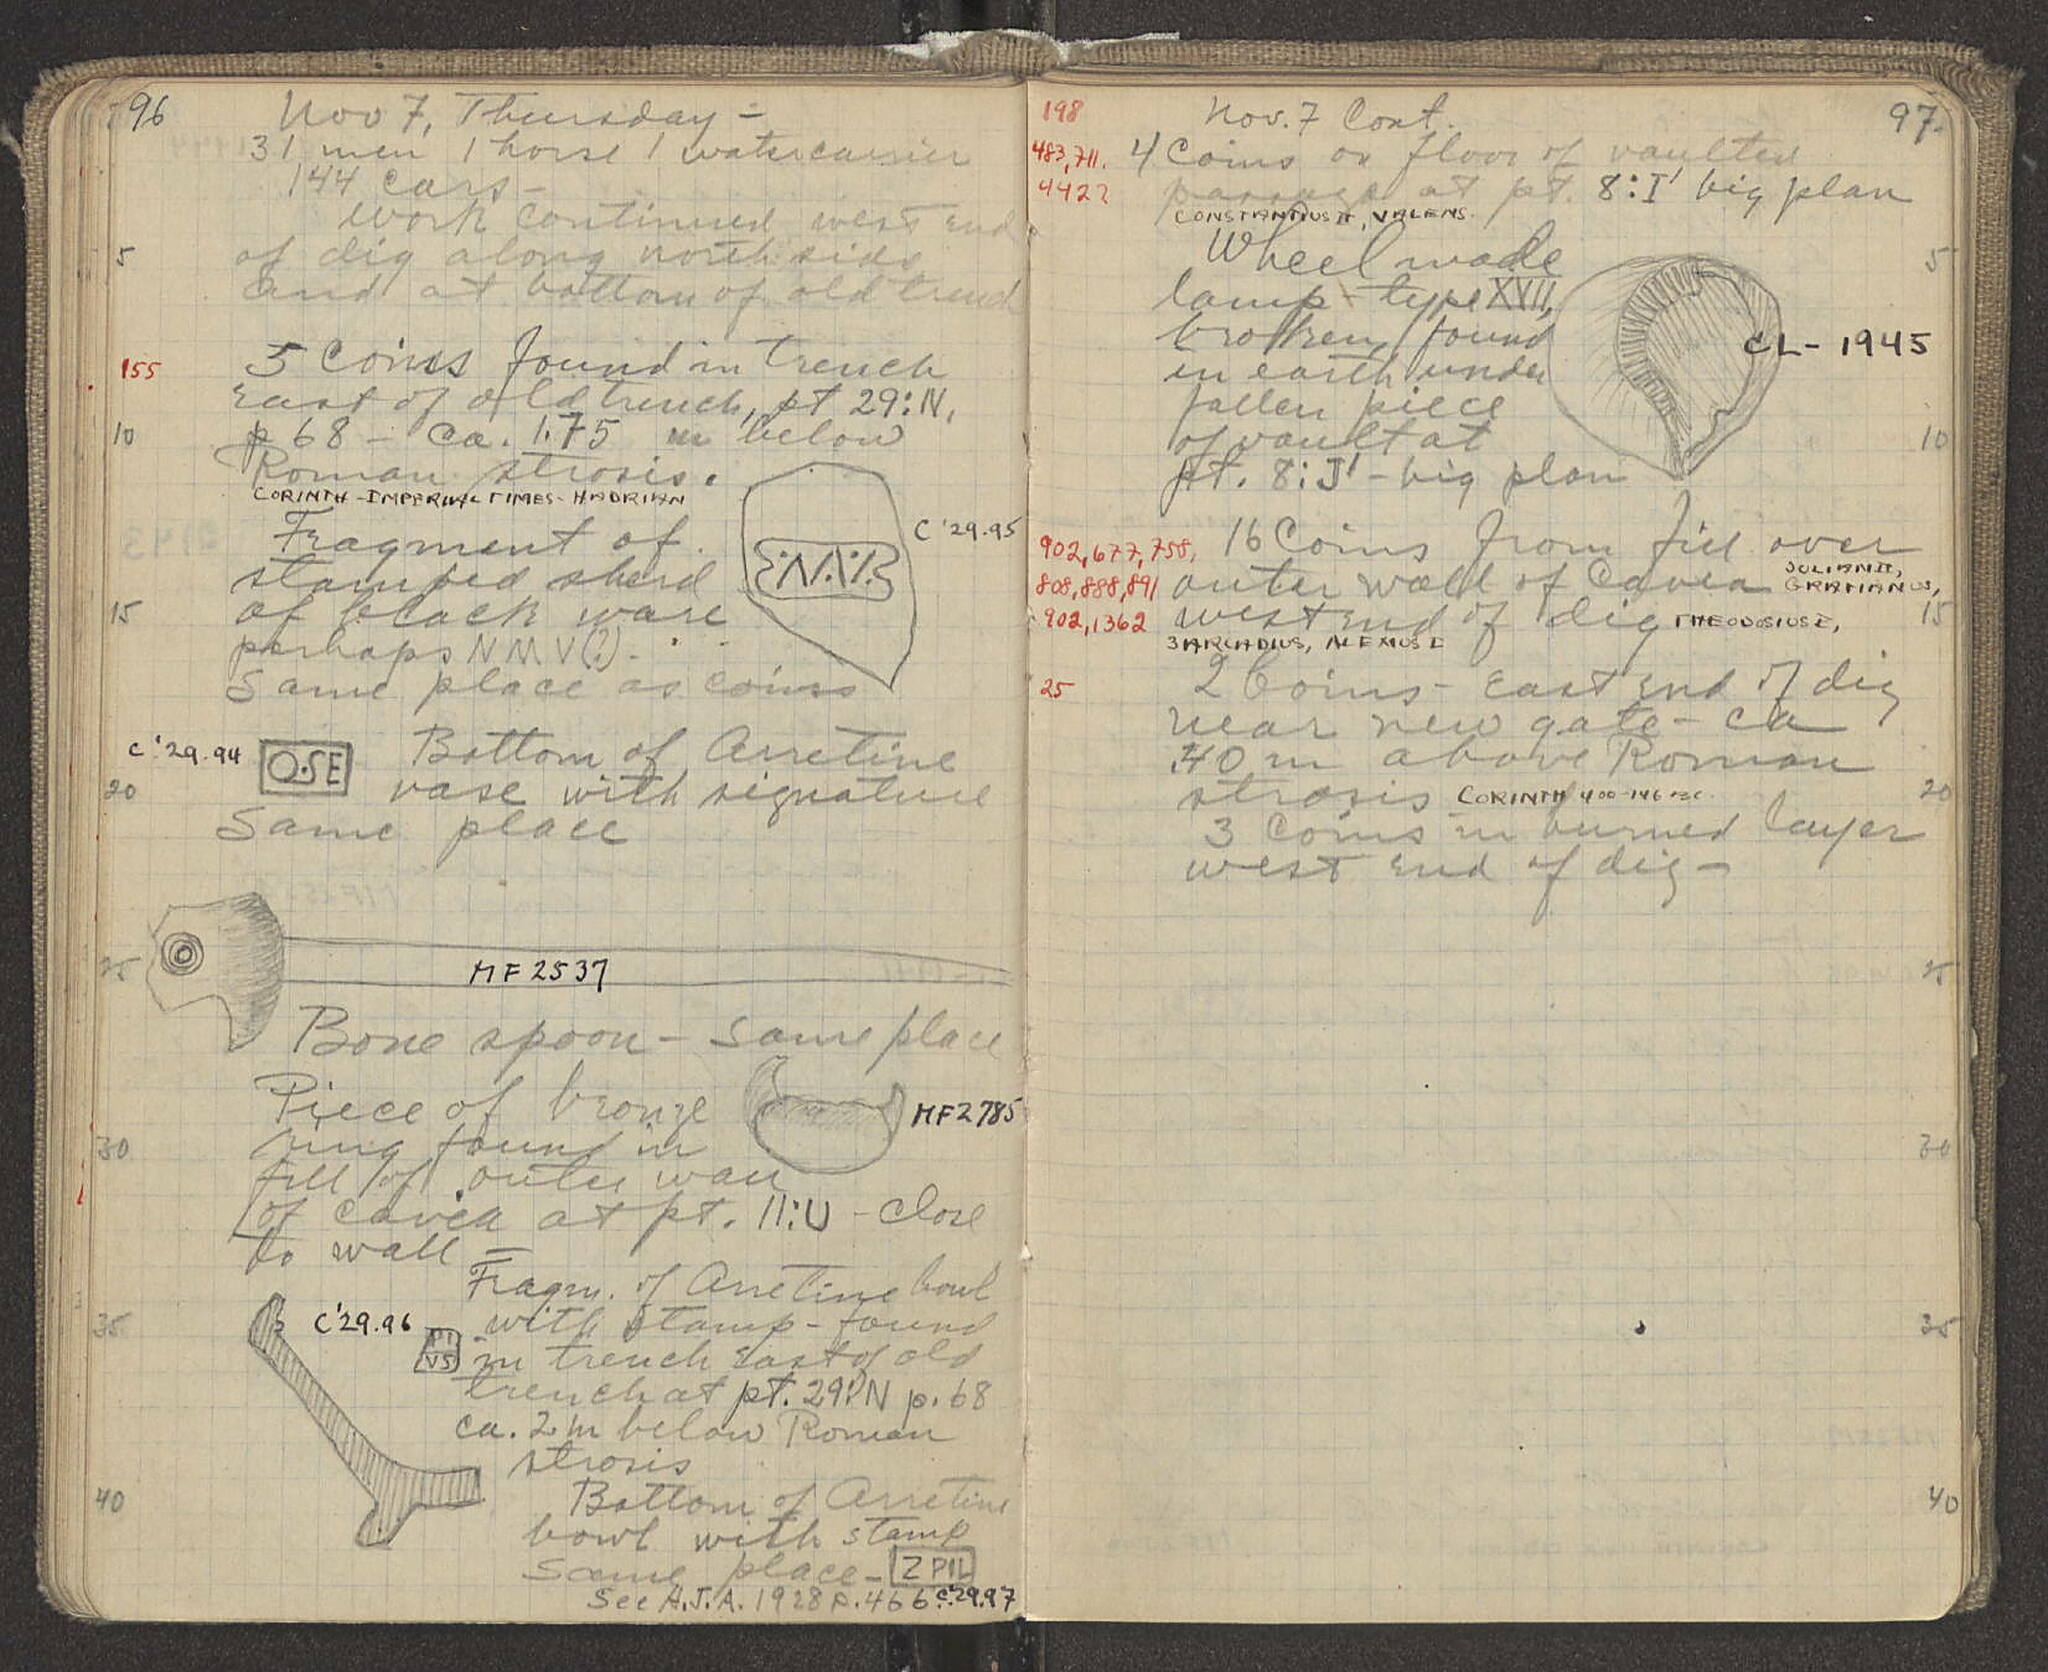 96
Nov 7, Thursday -
31 men 1 horse 1 watercarrier
144 cars -
Work continued west end
5
of dig along north side
and at bottom of old trench
155
5 Coins found in trench
East of old trench, pt 29:N,
10
p 68 - ca. 1.75 m below
Roman strosis.
CORINTH - IMPERIAL TIMES - HADRIAN
Fragment of
stamped sherd
15
of black ware
perhaps NMV(?) -
Same place as coins
C '29.95
C '29.94
Q·SE
Bottom of Arretine
20
vase with signature
Same place
25
MF 2537
Bone spoon - same place
Piece of bronze
MF 2785
30
ring found in
fill of outer wall
of cavea at pt. 11:U - close
to wall -
Fragm. of Arretine bowl
35
C '29.96
with stamp - found
VS
in trench East of old
trench at pt. 29:N p. 68
ca. 2 m below Roman
strosis
40
Bottom of Arretine
bowl with stamp
Same place - Z PIL
See A.J.A. 1928 p. 466 C '29.97
198
Nov. 7 Cont.
97.
483, 711.
4 Coins on floor of vaulted
442?
passage at pt. 8:I' big plan
CONSTANTIUS II, VALENS.
Wheel made
5
lamp - type XVII,
broken, found
CL - 1945
in earth under
fallen piece
of vault at
10
pt. 8:J' - big plan
902, 677, 758,
16 Coins from fill over
JULIAN II,
808, 888, 891
outer wall of Cavea
GRATIANUS,
902, 1362
west end of dig
THEODOSIUS I,
15
3 ARCADIUS, ALEXIUS I
25
2 Coins - East end of dig
near new gate - ca
.40 m above Roman
strosis
CORINTH 400-146 BC.
20
3 Coins in burned layer
west end of dig -
25
30
35
40